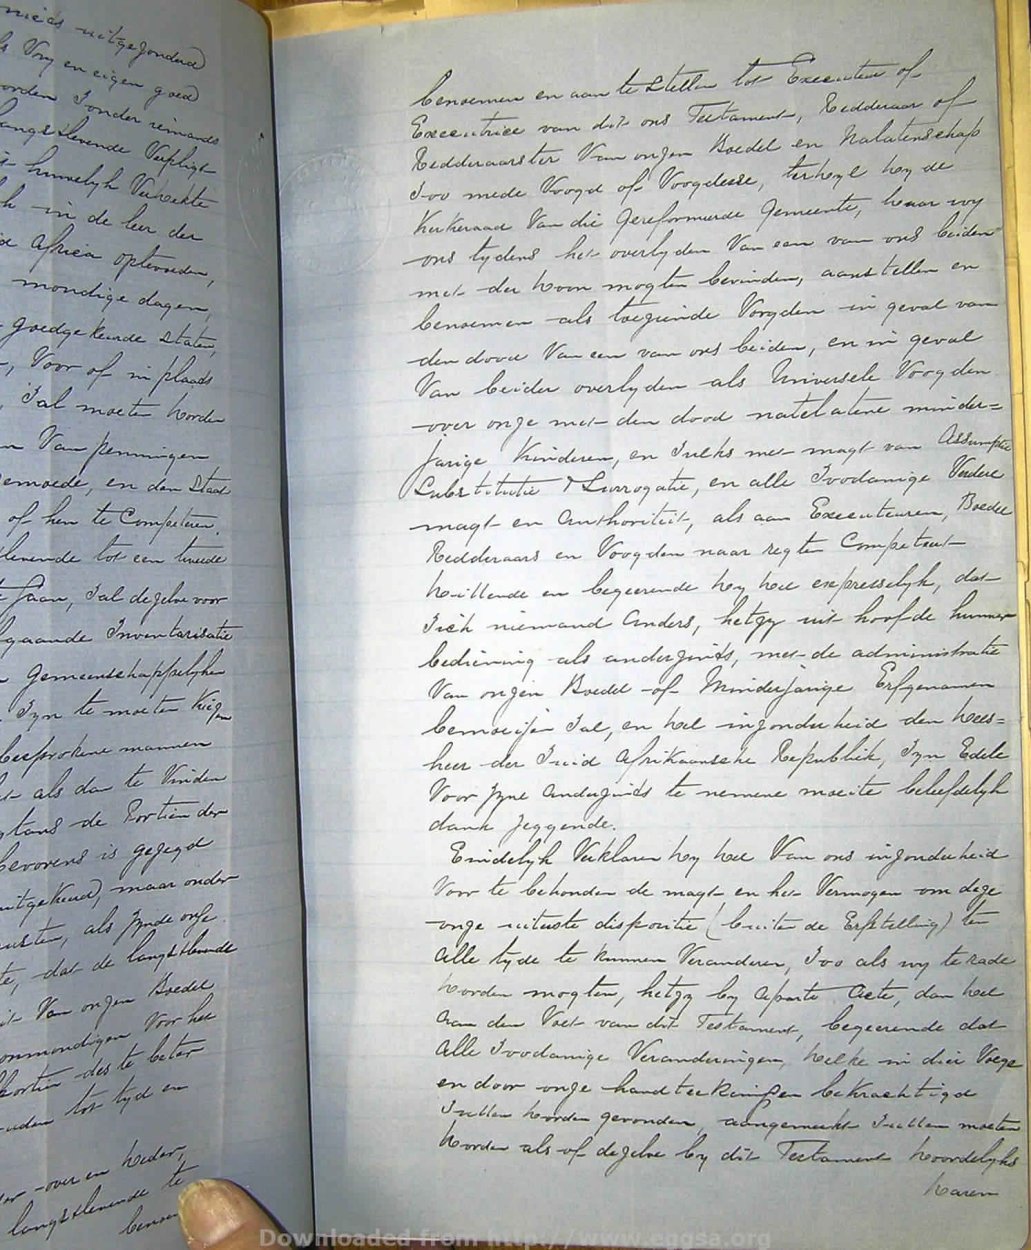 mits uitgezonderd
Vry en eigen goed
orden Zonder iemands
langstlevende Verpligt
huwelyk Verwekte
in de leer der
Africa optevoeden,
mondige dagen,
goedgekeurde Staten,
Voor of in plaats
Zal moeten worden
Van penningen
gemoede, en den Staat
of hen te Competeren.
levende tot een tweede
gaan, Zal dezelve voor
afgaande Inventarisatie
gemeenschappelyken
Zyn te moeten
besprokene mannen
als dan te Vinden
de Portien der
bevorens is gezegd
uitgekeerd, maar onder
als zynde onze
dat de langstlevende
Van onzen Boedel
Voor het
portien des te beter
tot tyd en
over en weder,
langstlevende te
benoe
benoemen en aan te Stellen tot Executeur of
Executrice van dit ons Testament, Redderaar of
Redderaarster Van onzen Boedel en Nalatenschap
Zoo mede Voogd of Voogdesse, terwyl wy de
Kerkeraad Van die Gereformeerde Gemeente, waar wy
ons tydens het overlyden Van een van ons beiden
met der woon mogten bevinden, aanstellen en
benoemen als toeziende Voogden in geval van
den dood Van een van ons beiden, en in geval
Van beider overlyden als Universele Voogden
over onze met den dood natelatene minder=
jarige Kinderen, en Zulks met magt van Assumptie
Substitutie & Surrogatie, en alle Zoodanige Verdere
magt en Authoriteit, als aan Executeuren, Boedel
Redderaars en Voogden naar regten Competeert
Willende en begeerende wy wel expresselyk, dat
Zich niemand Anders, hetzy uit hoofde hunner
bediening als anderzints, met de administratie
Van onzen Boedel of Minderjarige Erfgenamen
bemoeijen Zal, en wel inzonderheid den Wees=
heer der Zuid Afrikaansche Republiek, Zyn Edele
Voor zyne Anderzints te nemene moeite beleefdelyk
dank zeggende.
Eindelyk Verklaren wy wel Van ons inzonderheid
Voor te behouden de magt en het Vermogen om deze
onze uiterste dispositie (buiten de Erfstelling) ten
Alle tyde te kunnen Veranderen, Zoo als wy te rade
worden mogten, hetzy by Aparte Acte, dan wel
Aan den Voet van dit Testament, begeerende dat
Alle Zoodanige Veranderingen, Welke in dier Voege
en door onze handteekeningen bekrachtigd
Zullen worden gevonden, aangemerkt Zullen moeten
Worden als of dezelve by dit Testament woordelyks
Waren
Downloaded from http://www.eggsa.org